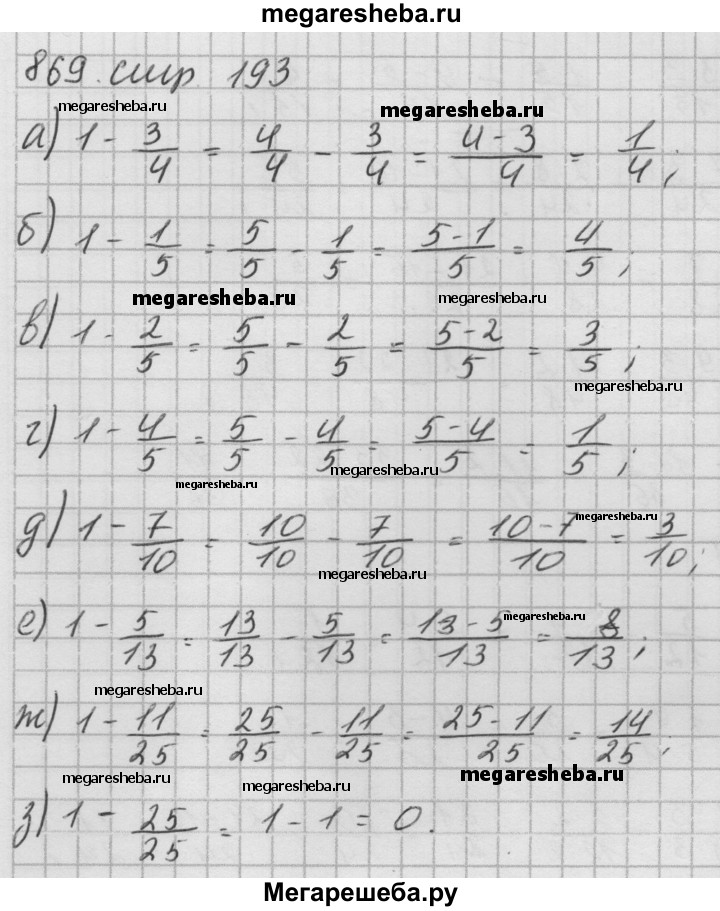 megaresheba.ru
869. стр 193
megaresheba.ru
megaresheba.ru
а) 1 - 3/4 = 4/4 - 3/4 = (4-3)/4 = 1/4;
б) 1 - 1/5 = 5/5 - 1/5 = (5-1)/5 = 4/5;
megaresheba.ru
megaresheba.ru
в) 1 - 2/5 = 5/5 - 2/5 = (5-2)/5 = 3/5;
megaresheba.ru
г) 1 - 4/5 = 5/5 - 4/5 = (5-4)/5 = 1/5;
megaresheba.ru
megaresheba.ru
megaresheba.ru
д) 1 - 7/10 = 10/10 - 7/10 = (10-7)/10 = 3/10;
megaresheba.ru
е) 1 - 5/13 = 13/13 - 5/13 = (13-5)/13 = 8/13;
megaresheba.ru
megaresheba.ru
ж) 1 - 11/25 = 25/25 - 11/25 = (25-11)/25 = 14/25;
megaresheba.ru
megaresheba.ru
megaresheba.ru
з) 1 - 25/25 = 1 - 1 = 0.
Мегарешеба.ру